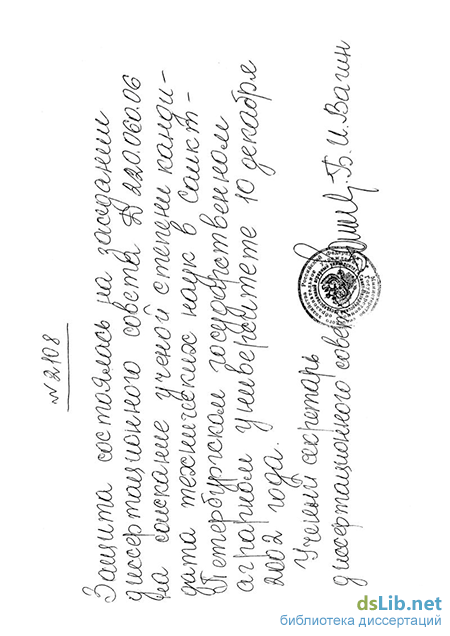 № 2108
Защита состоялась на заседании
диссертационного совета Д 220.060.06
на соискание ученой степени канди-
дата технических наук в Санкт-
Петербургском государственном
аграрном университете 10 декабря
2002 года.
Ученый секретарь
диссертационного совета Б.И. Вагин
dsLib.net
библиотека диссертаций